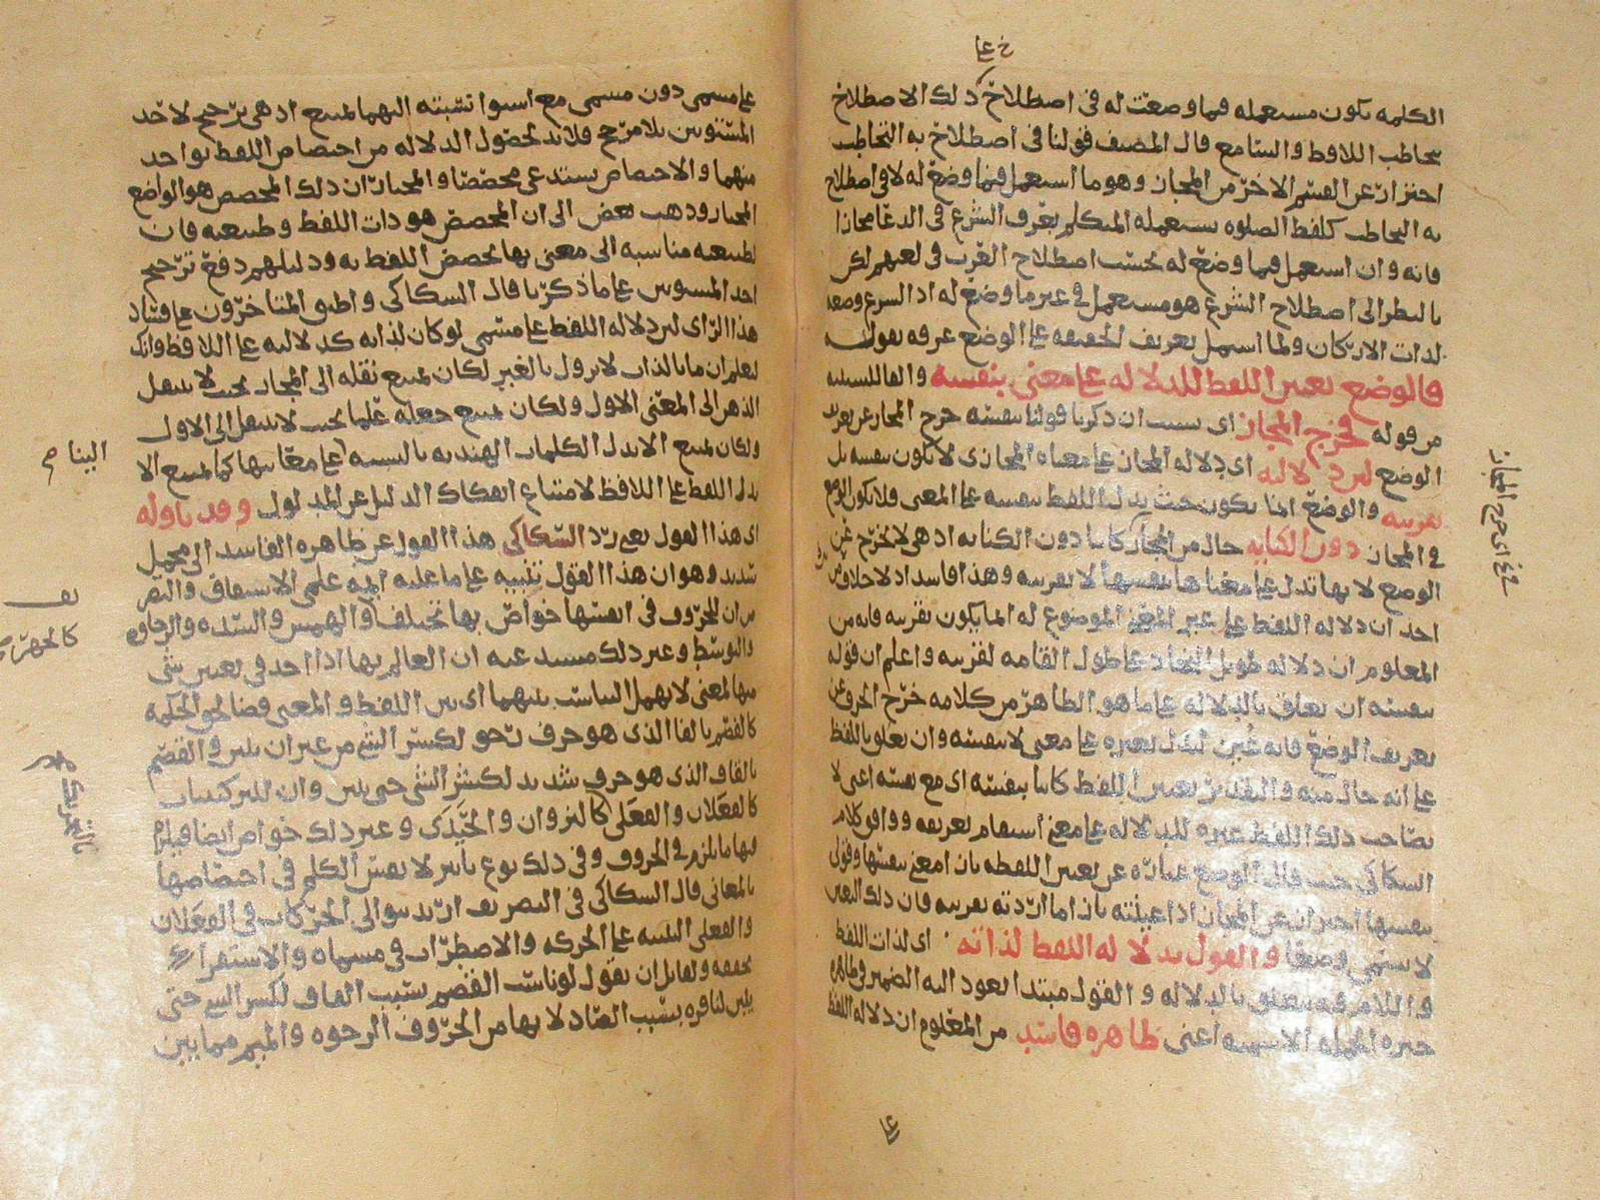 خ عا
الكلمه تكون مستعمله فيما وضعت له فى اصطلاح ذلك الاصطلاح
يخاطب اللافظ والسامع قال المصنف قولنا فى اصطلاح به التخاطب
احترازا عن القسم الاخر من المجاز وهو ما استعمل فيما وضع له لا فى اصطلاح
به التخاطب كلفظ الصلوه يستعمله المتكلم بعرف الشرع فى الدعا مجازا
فانه وان استعمل فيما وضع له بحسب اصطلاح العرب فى لغتهم لكن
بالنظر الى اصطلاح الشرع هو مستعمل فى غير ما وضع له اذ الشرع وضعه
لذات الاركان ولما اشتمل تعريف الحقيقه على الوضع عرفه بقوله
والوضع تعيين اللفظ للدلاله على معنى بنفسه والفا للسببيه
من قوله فخرج المجاز اى بسبب ان ذكرنا قولنا بنفسه خرج المجاز عن
الوضع لان دلالته اى دلاله المجاز على معناه المجازى لا تكون بنفسه بل
بقرينه والوضع انما يكون حيث يدل اللفظ بنفسه على المعنى فلا يكون
فى المجاز دون الكنايه حال من المجاز كاينا دون الكنايه اذ هى لا تخرج عن
الوضع لانها تدل على معناها بنفسها لا بقرينه وهذا فاسد اذ لا خلاف
احد ان دلاله اللفظ على غير المعنى الموضوع له انما يكون بقرينه فانه من
المعلوم ان دلاله طويل النجاد على طول القامه لقرينه واعلم ان قوله
بنفسه ان تعلق بالدلاله على ما هو الظاهر من كلامه خرج الحرف عن
تعريف الوضع فانه عين ليدل بغيره على معنى لا بنفسه وان تعلق باللفظ
على انه حال منه والتقدير تعيين اللفظ كاينا بنفسه اى مع نفسه اعنى لا
يصاحب ذلك اللفظ غيره للدلاله على معنى استقام تعريفه ووافق كلام
السكاكى حيث قال الوضع عباره عن تعيين اللفظه بازا معنى بنفسها وقولى
بنفسها احتراز عن المجاز اذا عينته بازا ما اردته بقرينه فان ذلك التعيين
لا يسمى وضعا والقول بدلاله اللفظ لذاته اى لذات اللفظ
واللام فيه متعلق بالدلاله والقول مبتدا يعود اليه الضمير
خبره الجمله الاسميه اعنى ظاهره فاسد من المعلوم ان دلاله اللفظ
على مسمى دون مسمى مع استوا نسبته اليهما يمتنع اذ هى ترجيح لاحد
المستويين بلا مرجح فلا بد لحصول الدلاله من اختصاص اللفظ بواحد
منهما والاختصاص يستدعى مخصصا والمختار ان ذلك المخصص هو الواضع
المختار وذهب بعض الى ان المخصص هو ذات اللفظ وطبيعته فان
لطبيعته مناسبه الى معنى بها تخصص اللفظ به ودليلهم دفع ترجيح
احد المستويين على ما ذكرنا قال السكاكى واطبق المتاخرون على فساد
هذا الراى لان دلاله اللفظ على مسمى لو كان لذاته كدلالته على اللافظ وانك
لتعلم ان ما بالذات لا يزول بالغير لكان يمتنع نقله الى المجاز بحيث لا ينتقل
الذهن الى المعنى الاول ولكان يمتنع جعله علما بحيث لا ينتقل الى الاول
ولكان يمتنع الا تدل الكلمات الهنديه بالنسبه على معانيها كما يمتنع الا
يدل اللفظ على اللافظ لامتناع انفكاك الدليل عن المدلول وقد تاوله
اى هذا القول يعنى رد السكاكى هذا القول عن ظاهره الفاسد الى محمل
سديد وهو ان هذا القول تنبيه على ما عليه ايمه علمى الاشتقاق والتصر
من ان للحروف فى انفسها خواص بها تختلف والهمس والشده والرخاوه
والتوسط وغير ذلك مستدعيه ان العالم بها اذا اخذ فى تعيين شى
منها لمعنى لا يهمل التناسب بينهما اى بين اللفظ والمعنى قضا لحق الحكمه
كالفصم بالفا الذى هو حرف رخو لكسر الشى من غير ان يبين والقصم
بالقاف الذى هو حرف شديد لكسر الشى حتى يبين وان للتركيبات
كالفعلان والفعلى كالنزوان والحيدى وغير ذلك خواص ايضا فيلزم
فيها ما يلزم فى الحروف وفى ذلك نوع تاثير لا نفس الكلم فى اختصاصها
بالمعانى قال السكاكى فى التصريف ان توالى الحركات فى الفعلان
والفعلى على الحركه والاضطراب فى مسماه والاستقراء
يحققه ولقايل ان يقول لو ناسب القصم بسبب القاف لكسر الشى حتى
يبين لنافره بسبب الصاد لانها من الحروف الرخوه والميم مما بين
الينا م
يف
كالجهر
عا